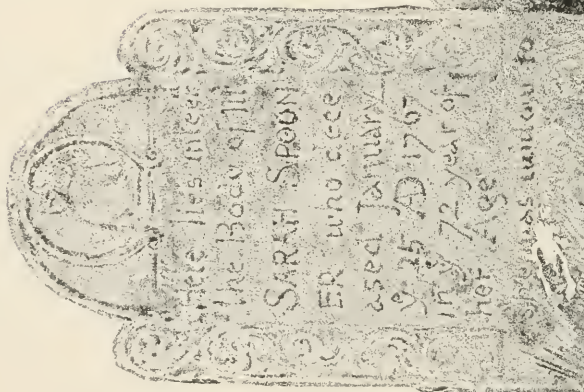 Here lies interr
the Body of Mrs
SARAH SPOON
ER who dece
ased January
ye 25 AD 1767
In ye 72 year of
her Age
She was widow to